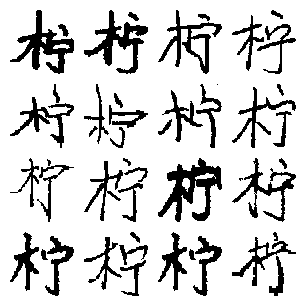 柠柠柠柠
柠柠柠柠
柠柠柠柠
柠柠柠柠